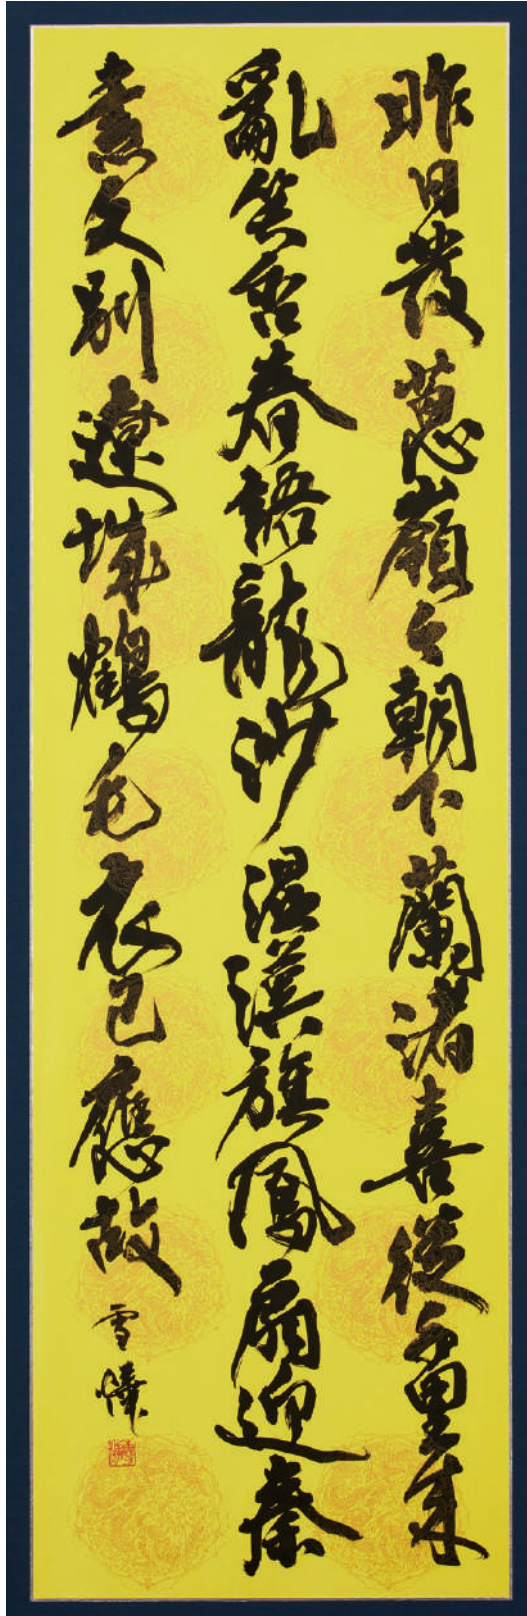 昨日發蔥嶺今朝下蘭渚喜從千里來
亂笑含春語龍沙湿漢旗鳳扇迎秦
素久別遼城鶴毛衣已應故
雪